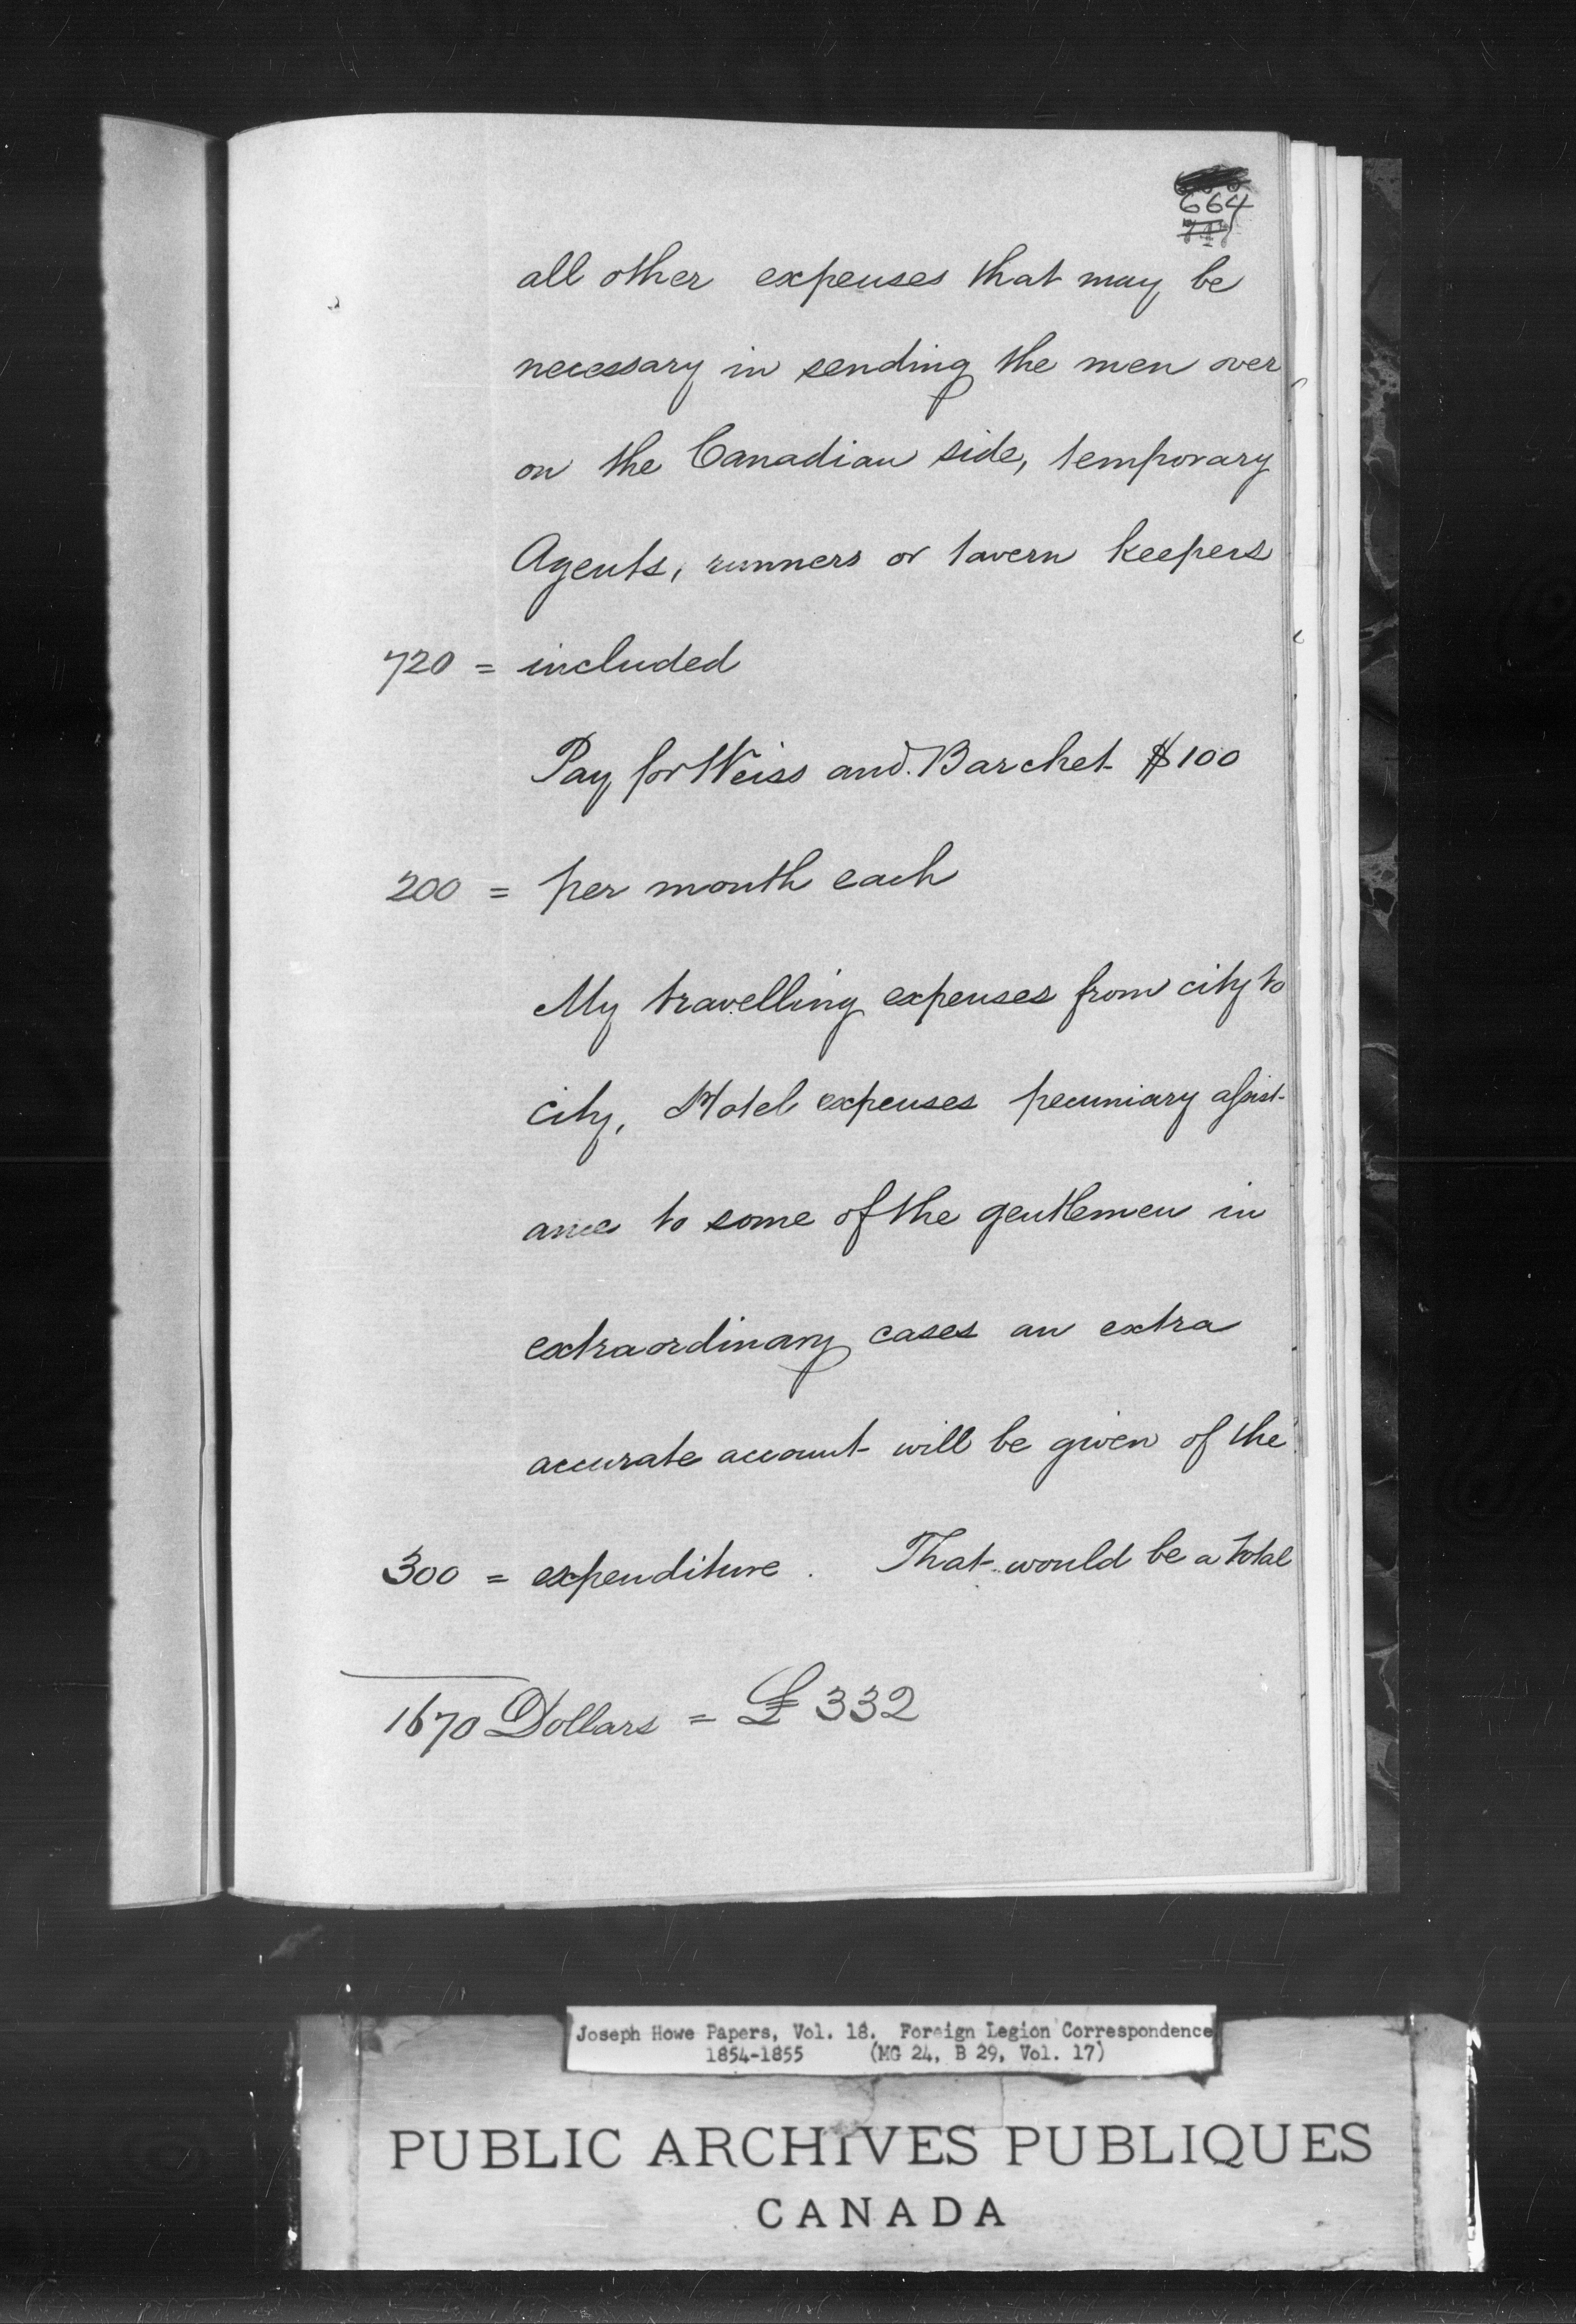 664
all other expenses that may be
necessary in sending the men over
on the Canadian side, temporary
Agents, runners or tavern keepers
720 = included
Pay for Weiss and Barchet $100
200 = per month each
My travelling expenses from city to
city, Hotel expenses pecuniary assist-
ance to some of the gentlemen in
extraordinary cases an extra
accurate account will be given of the
300 = expenditure. That would be a total
1670 Dollars = £332
Joseph Howe Papers, Vol. 18. Foreign Legion Correspondence
1854-1855 (MG 24, B 29, Vol. 17)
PUBLIC ARCHIVES PUBLIQUES
CANADA